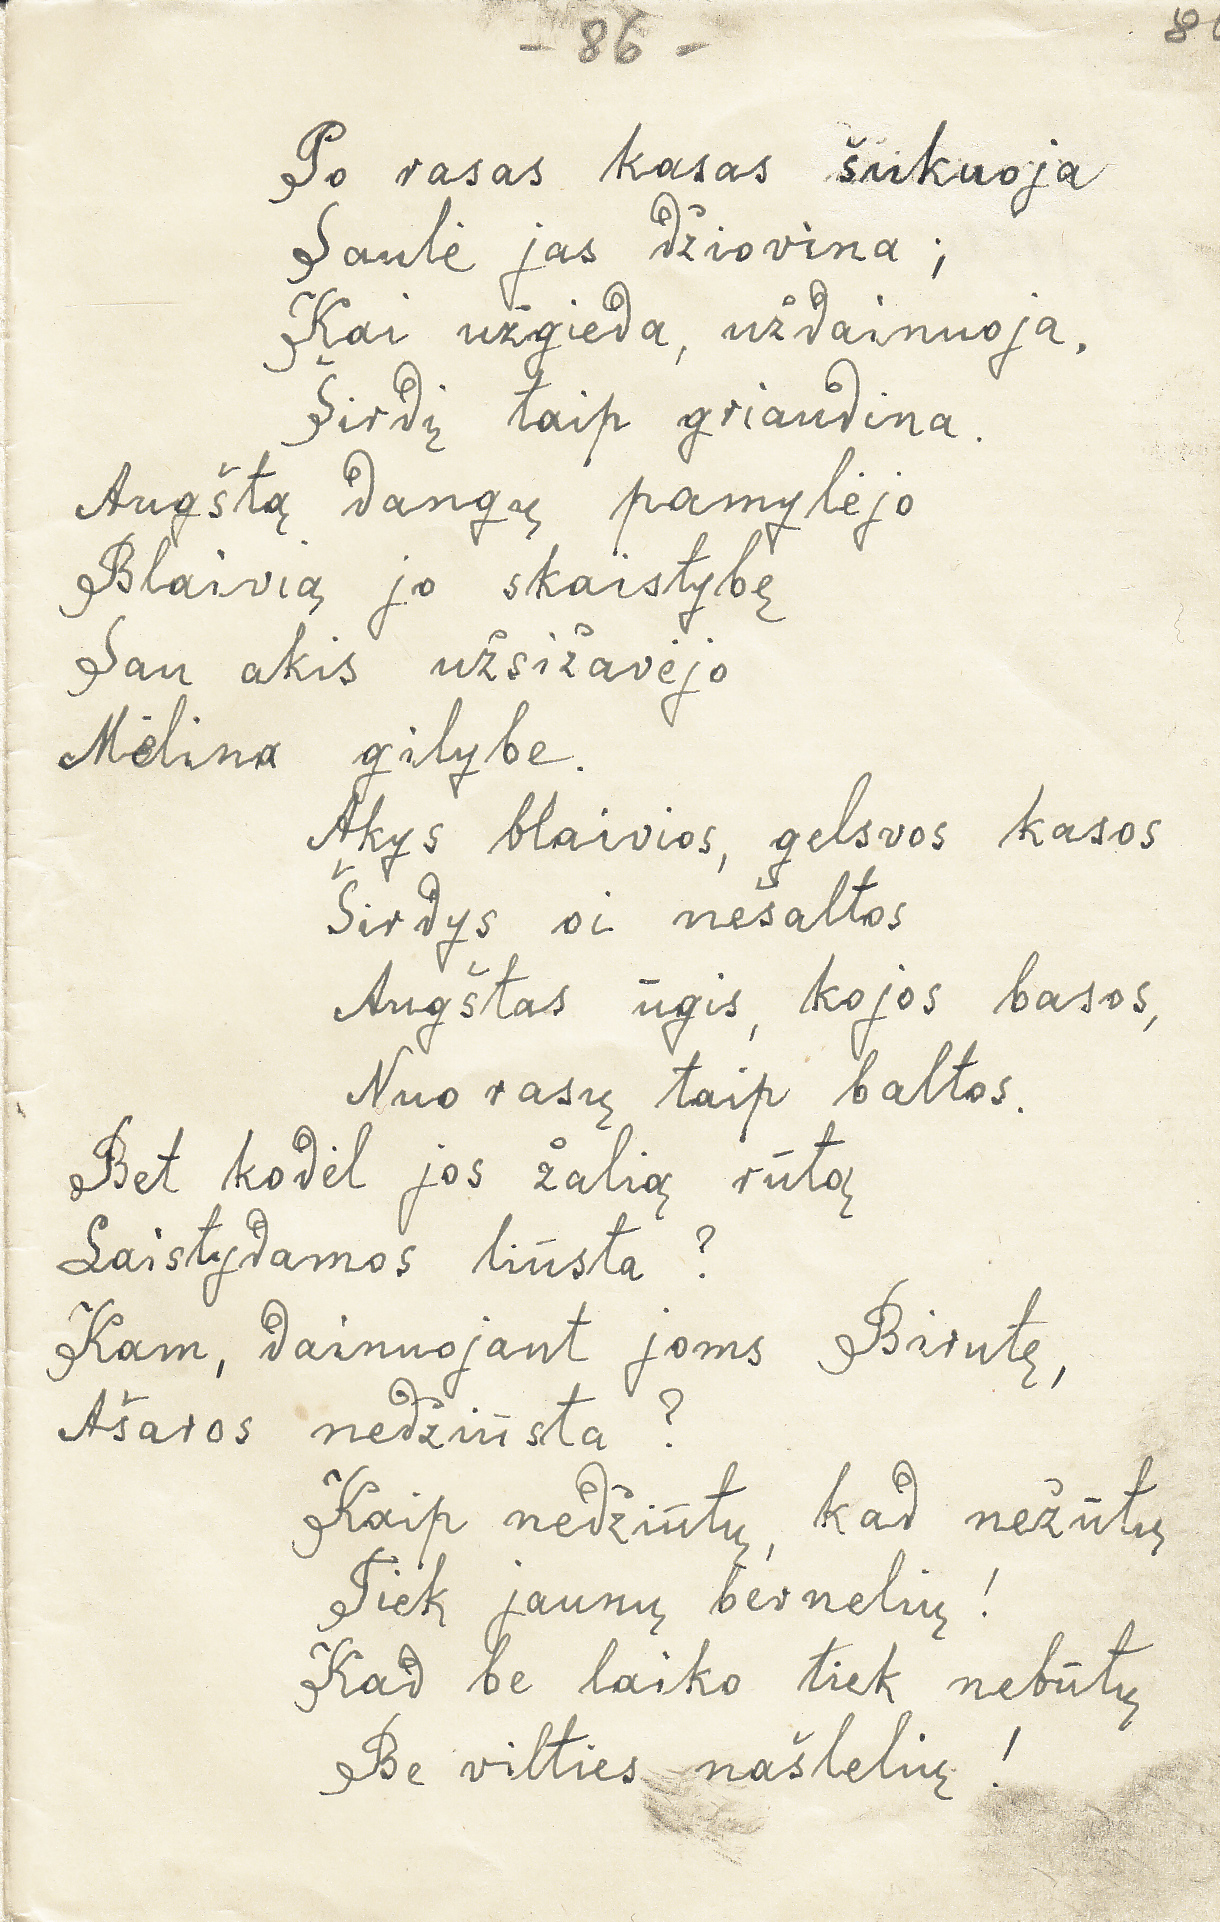 - 86 -
Po rasas kasas šukuoja
Saulė jas džiovina;
Kai užgieda, uždainuoja,
Širdį taip griaudina.
Augštą dangų pamylėjo
Blaivią jo skaistybę
Sau akis užsižavėjo
Mėlina gilybe.
Akys blaivios, gelsvos kasos
Širdys oi nešaltos
Augštas ūgis, kojos basos,
Nuo rasų taip baltos.
Bet kodėl jos žalią rūtą
Laistydamos liūsta?
Kam, dainuojant joms Birutę,
Ašaros nedžiūsta?
Kaip nedžiūtų, kad nežūtų
Tiek jaunų bernelių!
Kad be laiko tiek nebūtų
Be vilties našlelių!